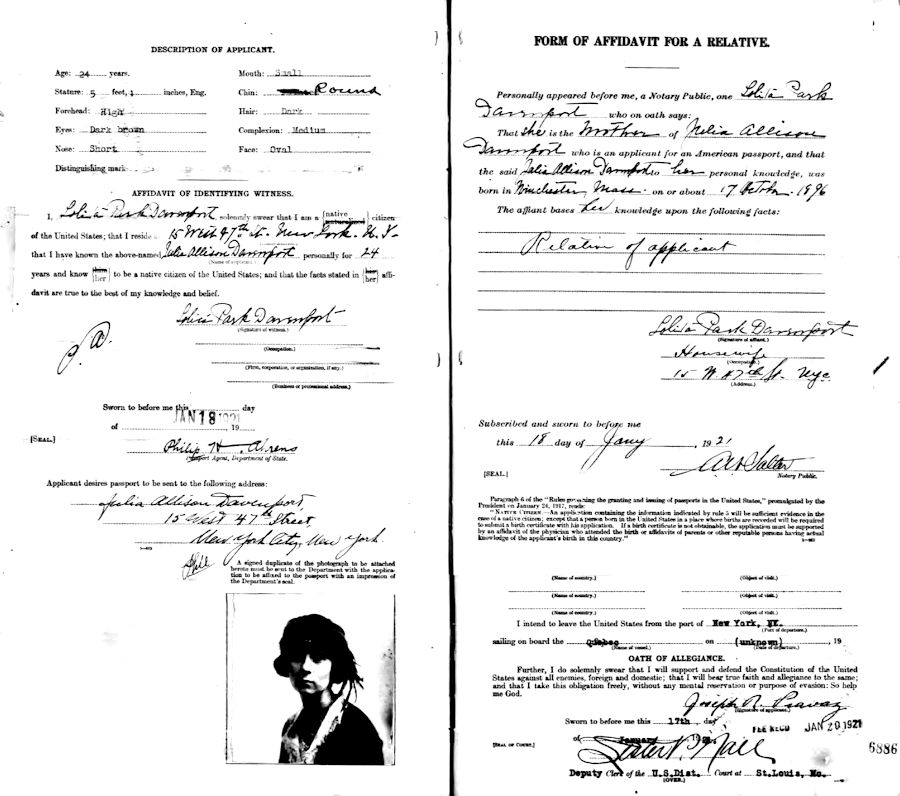 DESCRIPTION OF APPLICANT.
Age: 24 years. Mouth: Small
Stature: 5 feet, 1 inches, Eng. Chin: Round
Forehead: High Hair: Dark
Eyes: Dark brown Complexion: Medium
Nose: Short Face: Oval
Distinguishing mark
AFFIDAVIT OF IDENTIFYING WITNESS.
I, Lolita Park Davenport, solemnly swear that I am a {native naturalized} citizen
of the United States; that I reside 15 West 47th St. New York. N.Y.
that I have known the above-named Julia Allison Davenport personally for 24
(Name of applicant.)
years and know {him her} to be a native citizen of the United States; and that the facts stated in {his her} affi-
davit are true to the best of my knowledge and belief.
Lolita Park Davenport
(Signature of witness.)
(Occupation.)
(Firm, corporation, or organization, if any.)
(Business or professional address.)
Sworn to before me this day
JAN 18 1921
of , 19
[SEAL.]
Philip H. Ahrens
Passport Agent, Department of State.
Applicant desires passport to be sent to the following address:
Julia Allison Davenport
15 West 47th Street,
New York City, New York.
A signed duplicate of the photograph to be attached
hereto must be sent to the Department with the applica-
tion to be affixed to the passport with an impression of
the Department's seal.
FORM OF AFFIDAVIT FOR A RELATIVE.
Personally appeared before me, a Notary Public, one Lolita Park
Davenport who on oath says:
That she is the mother of Julia Allison
Davenport who is an applicant for an American passport, and that
the said Julia Allison Davenport to her personal knowledge, was
born in Winchester, Mass. on or about 17 October 1896
The affiant bases her knowledge upon the following facts:
Relation of applicant
Lolita Park Davenport
(Signature of affiant.)
Housewife
(Occupation.)
15 W 47th St. Nyc.
(Address.)
Subscribed and sworn to before me
this 18 day of Jany , 1921
Notary Public.
[SEAL.]
Paragraph 6 of the "Rules governing the granting and issuing of passports in the United States," promulgated by the
President on January 24, 1917, reads:
"NATIVE CITIZEN.—An application containing the information indicated by rule 5 will be sufficient evidence in the
case of a native citizen; except that a person born in the United States in a place where births are recorded will be required
to submit a birth certificate with his application. If a birth certificate is not obtainable, the application must be supported
by an affidavit of the physician who attended the birth or affidavits of parents or other reputable persons having actual
knowledge of the applicant's birth in this country."
(Name of country.) (Object of visit.)
(Name of country.) (Object of visit.)
(Name of country.) (Object of visit.)
I intend to leave the United States from the port of New York, NY.
(Port of departure.)
sailing on board the Quebec on (unknown) , 19
(Name of vessel.) (Date of departure.)
OATH OF ALLEGIANCE.
Further, I do solemnly swear that I will support and defend the Constitution of the United
States against all enemies, foreign and domestic; that I will bear true faith and allegiance to the same;
and that I take this obligation freely, without any mental reservation or purpose of evasion: So help
me God.
Joseph R. Pravaz
(Signature of applicant.)
Sworn to before me this 17th day
FEE RECD JAN 20 1921
of January 19
[SEAL OF COURT.]
6886
Deputy Clerk of the U.S.Dist. Court at St.Louis, Mo.
(OVER.)